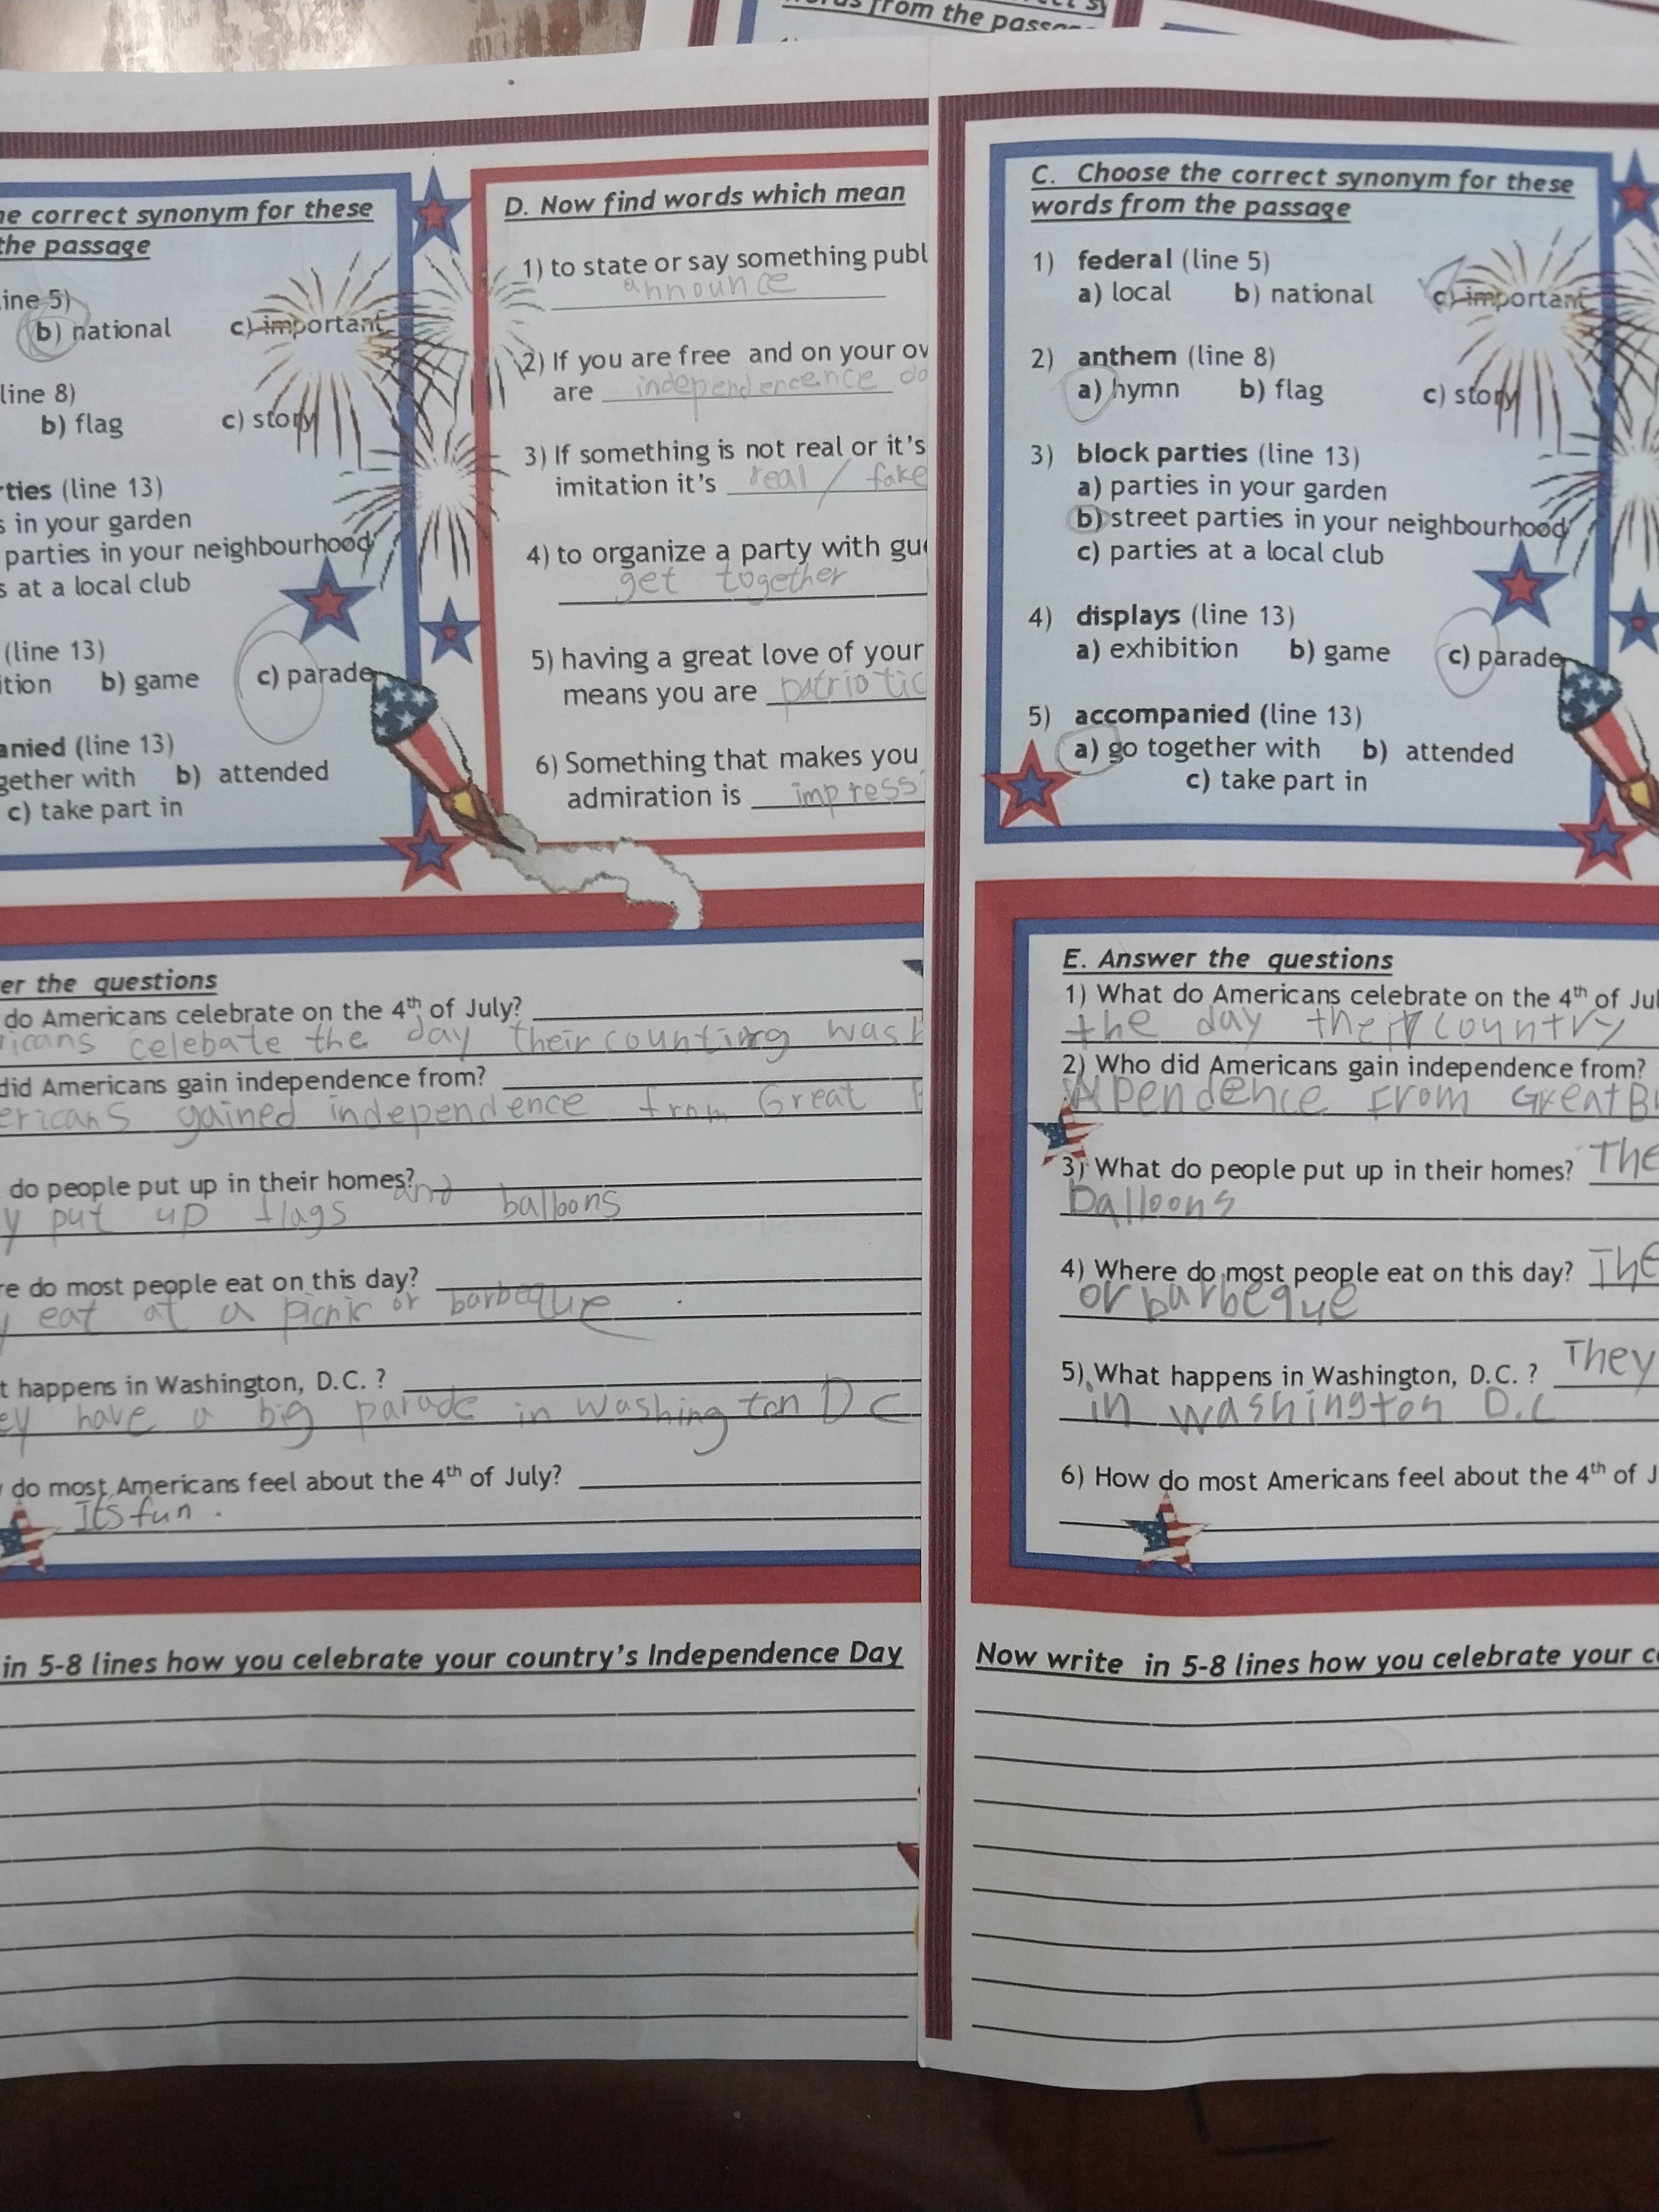 from the passage
he correct synonym for these
the passage
ine 5)
b) national c) important
line 8)
b) flag c) story
ties (line 13)
s in your garden
parties in your neighbourhood
s at a local club
(line 13)
ition b) game c) parade
anied (line 13)
gether with b) attended
c) take part in
D. Now find words which mean
1) to state or say something publ
announce
2) If you are free and on your ov
are independencence do
3) If something is not real or it's
imitation it's real / fake
4) to organize a party with gu
get together
5) having a great love of your
means you are patriotic
6) Something that makes you
admiration is impress
er the questions
do Americans celebrate on the 4th of July?
ricans celebate the day their countirng was
did Americans gain independence from?
ericans gained independence from Great
do people put up in their homes?
y put up flags and balloons
re do most people eat on this day?
y eat at a picnic or barbeque
t happens in Washington, D.C. ?
ey have a big parade in washington DC
do most Americans feel about the 4th of July?
It's fun.
in 5-8 lines how you celebrate your country's Independence Day
C. Choose the correct synonym for these
words from the passage
1) federal (line 5)
a) local b) national c) important
2) anthem (line 8)
a) hymn b) flag c) story
3) block parties (line 13)
a) parties in your garden
b) street parties in your neighbourhood
c) parties at a local club
4) displays (line 13)
a) exhibition b) game c) parade
5) accompanied (line 13)
a) go together with b) attended
c) take part in
E. Answer the questions
1) What do Americans celebrate on the 4th of Jul
the day their country
2) Who did Americans gain independence from?
pendence From Great B
3) What do people put up in their homes? The
balloons
4) Where do most people eat on this day? The
or barbeque
5) What happens in Washington, D.C. ? They
in washington D.C
6) How do most Americans feel about the 4th of J
Now write in 5-8 lines how you celebrate your c